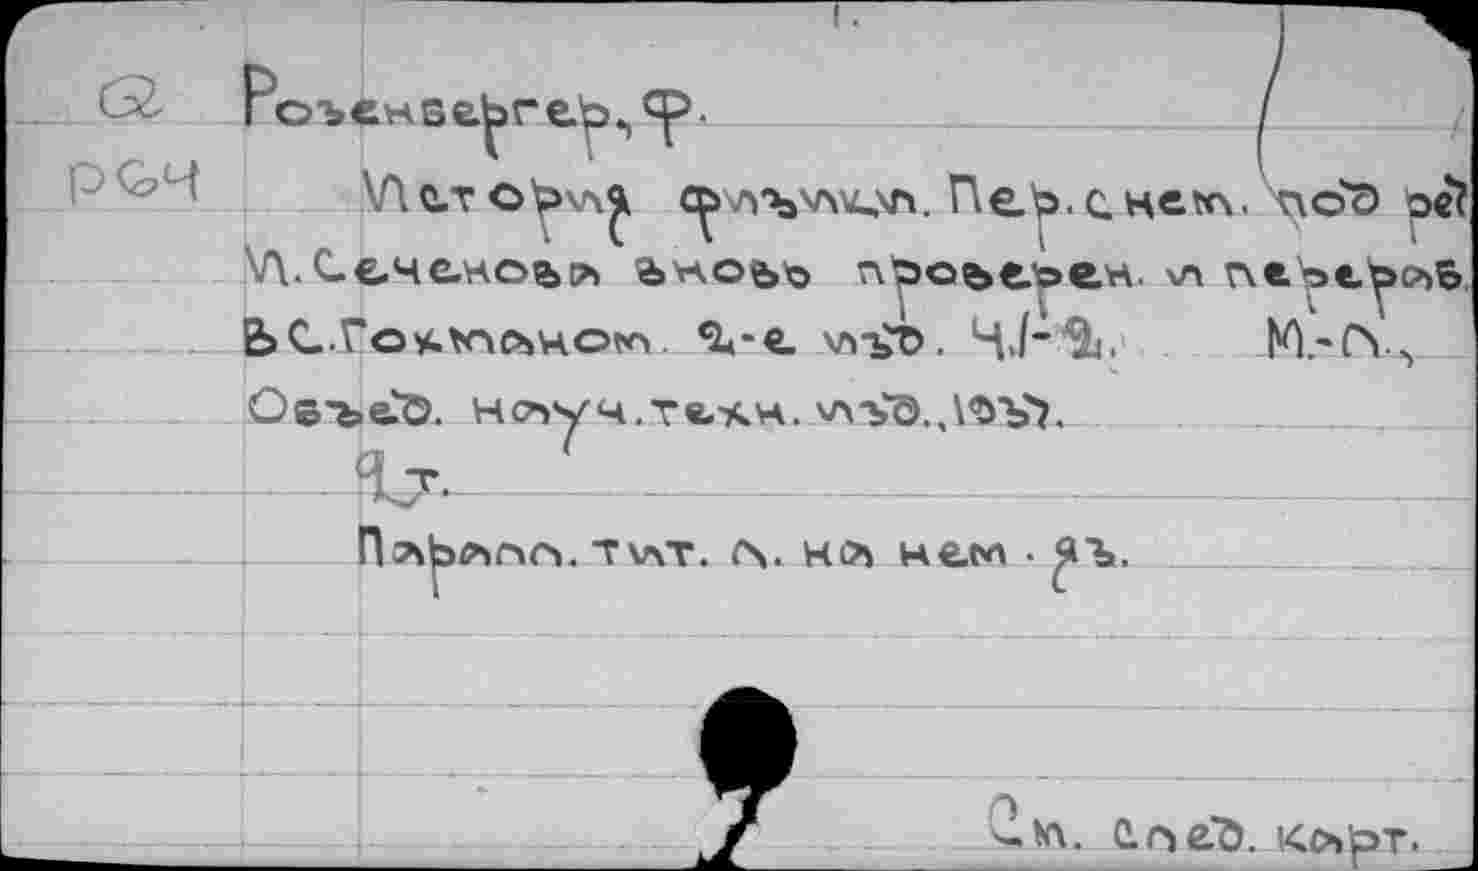 Розенбергер, Ф.
История физики. Пер. с нем. под ред
И. Сеченова вновь проверен. и перераб.
В.С. Гохманом. 2-е изд. Ч.1-2. М.-Л.,
Объед. науч. техн. изд., 1937.
2т.
Паралл. тит. л. на нем. яз.
См. след. карт.